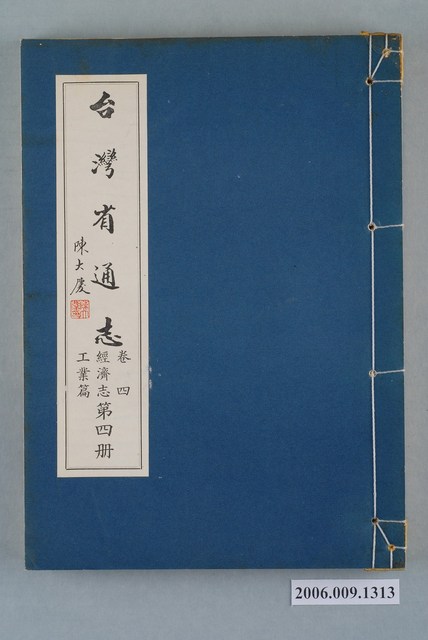 台灣省通志
陳大慶
卷四
經濟志第四册
工業篇
2006.009.1313